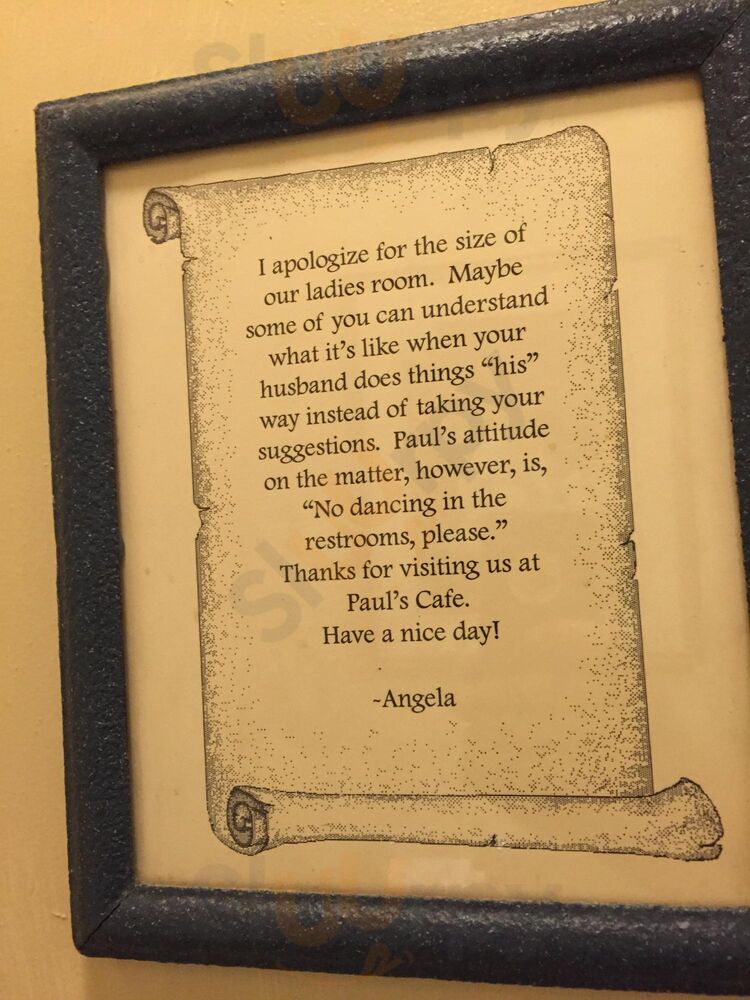 I apologize for the size of
our ladies room. Maybe
some of you can understand
what it's like when your
husband does things “his”
way instead of taking your
suggestions. Paul's attitude
on the matter, however, is,
“No dancing in the
restrooms, please.”
Thanks for visiting us at
Paul's Cafe.
Have a nice day!
~Angela